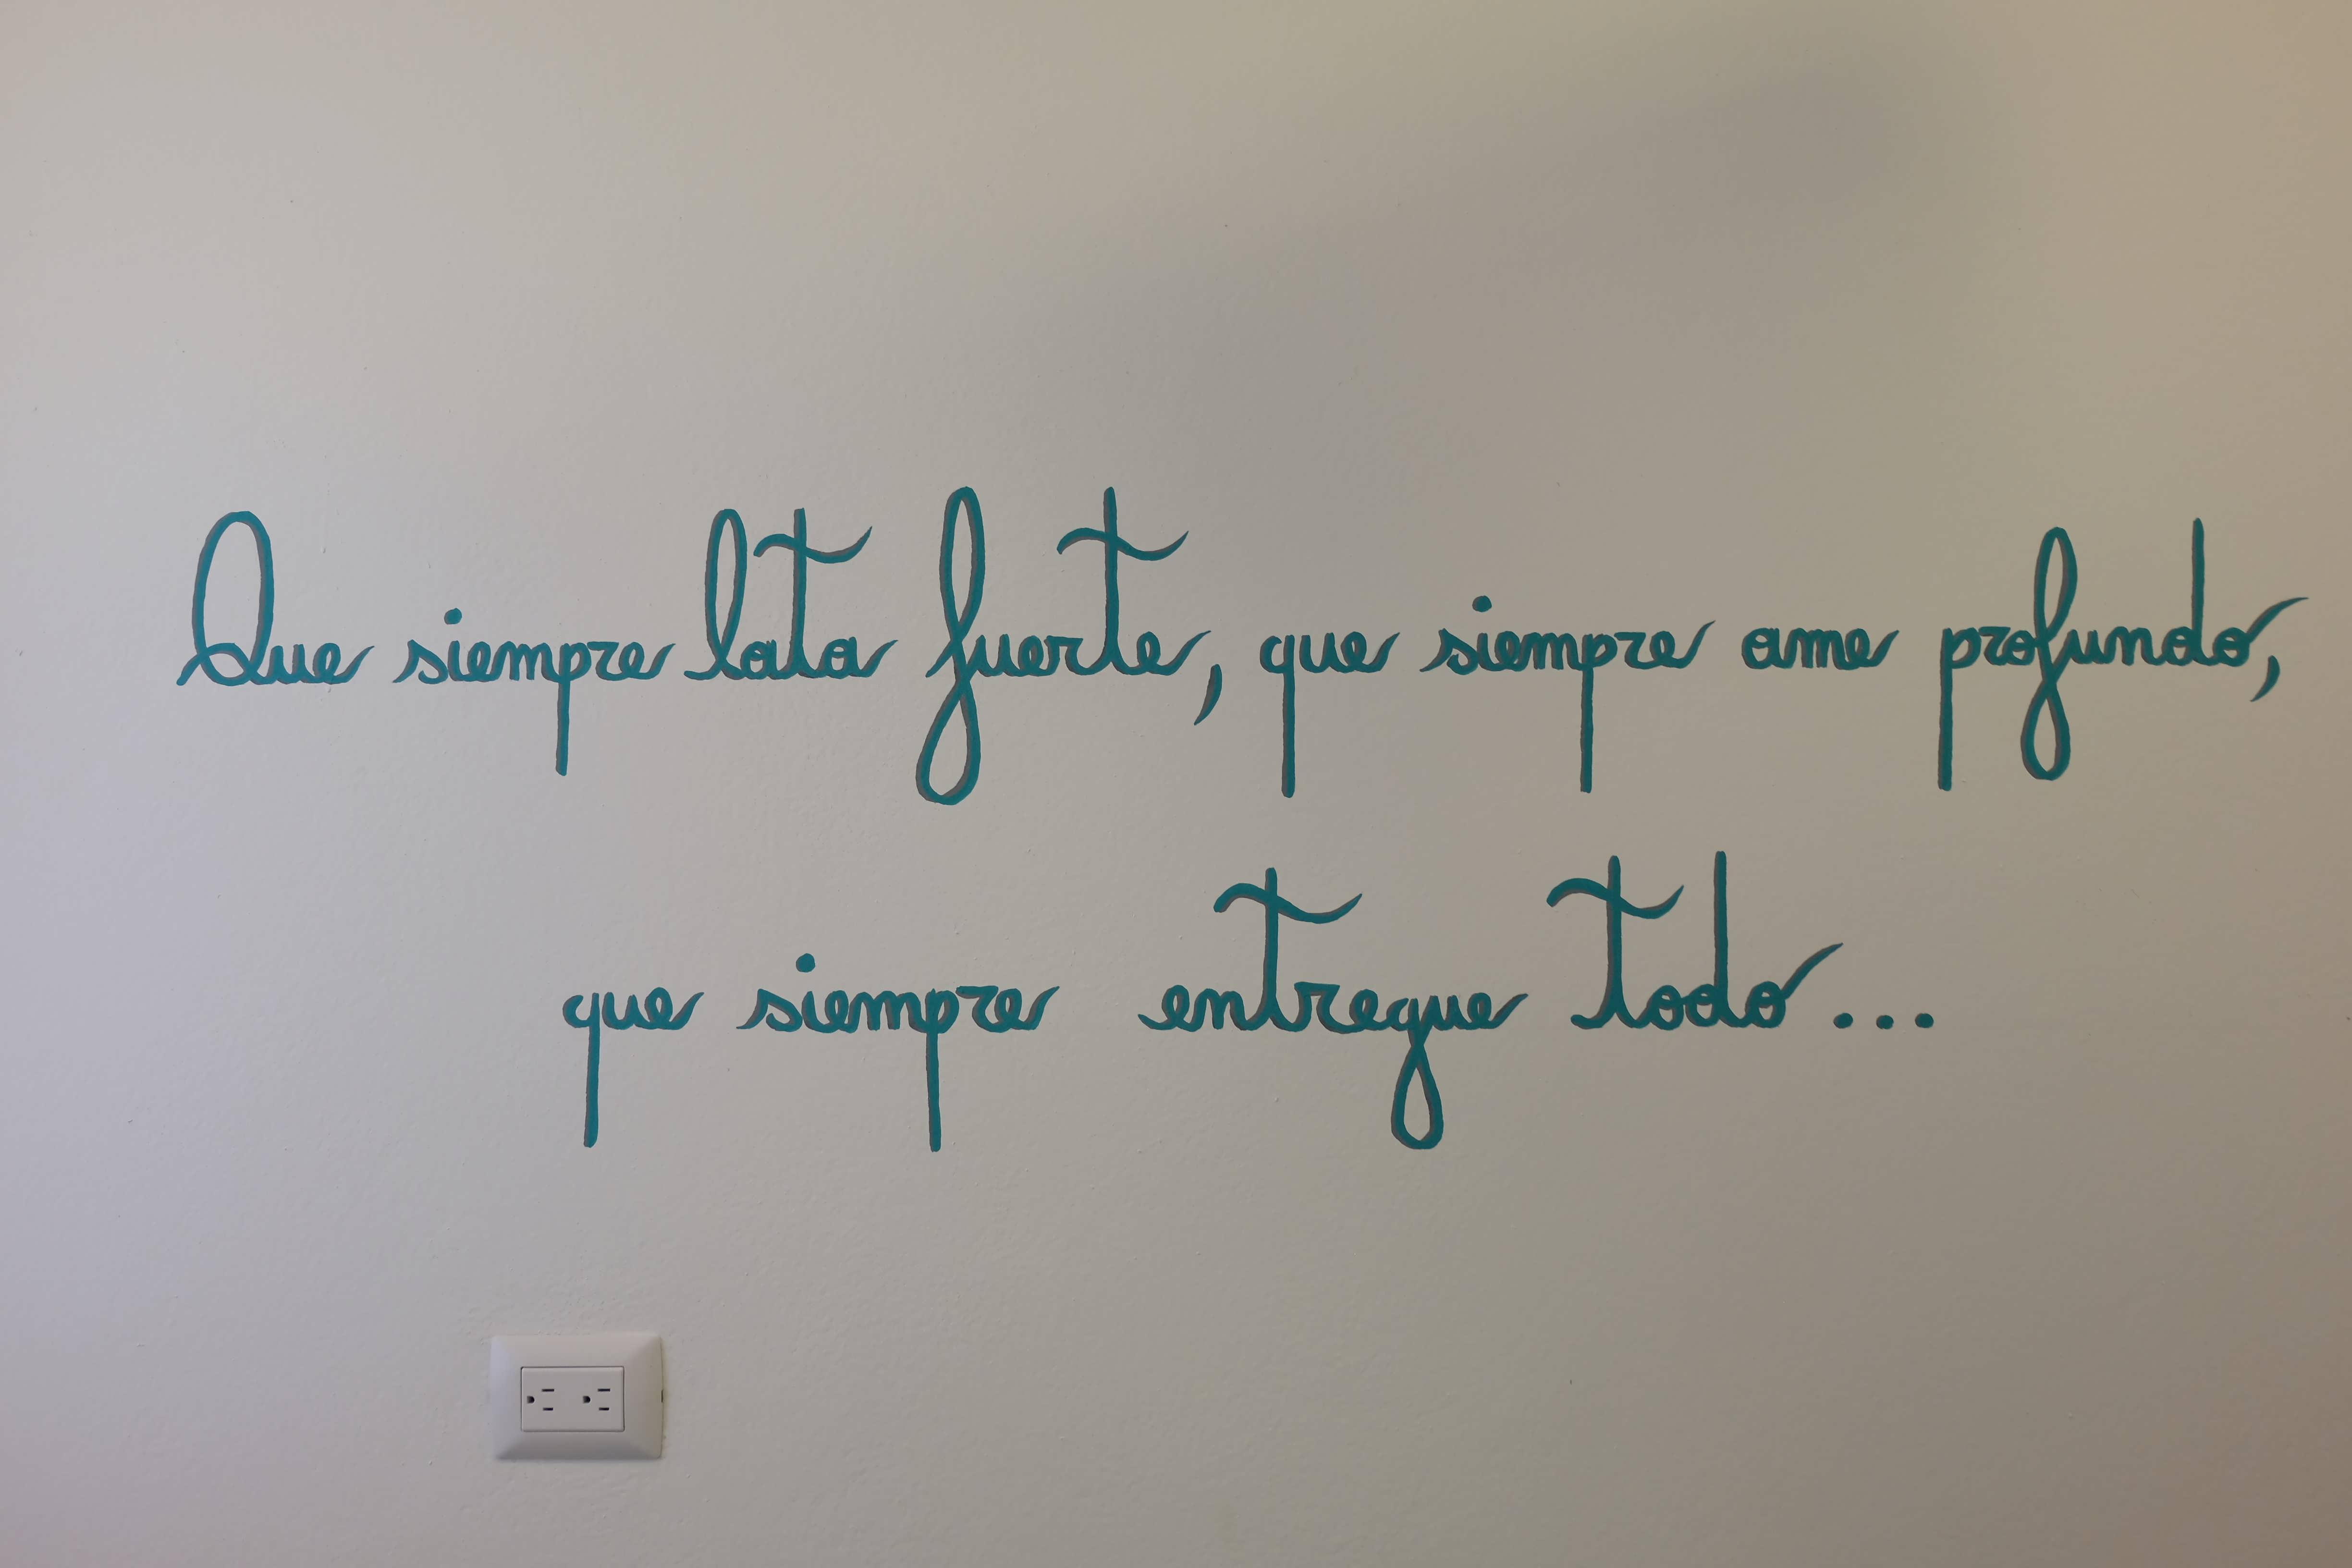 Que siempre lata fuerte, que siempre ame profundo,
que siempre entregue todo...